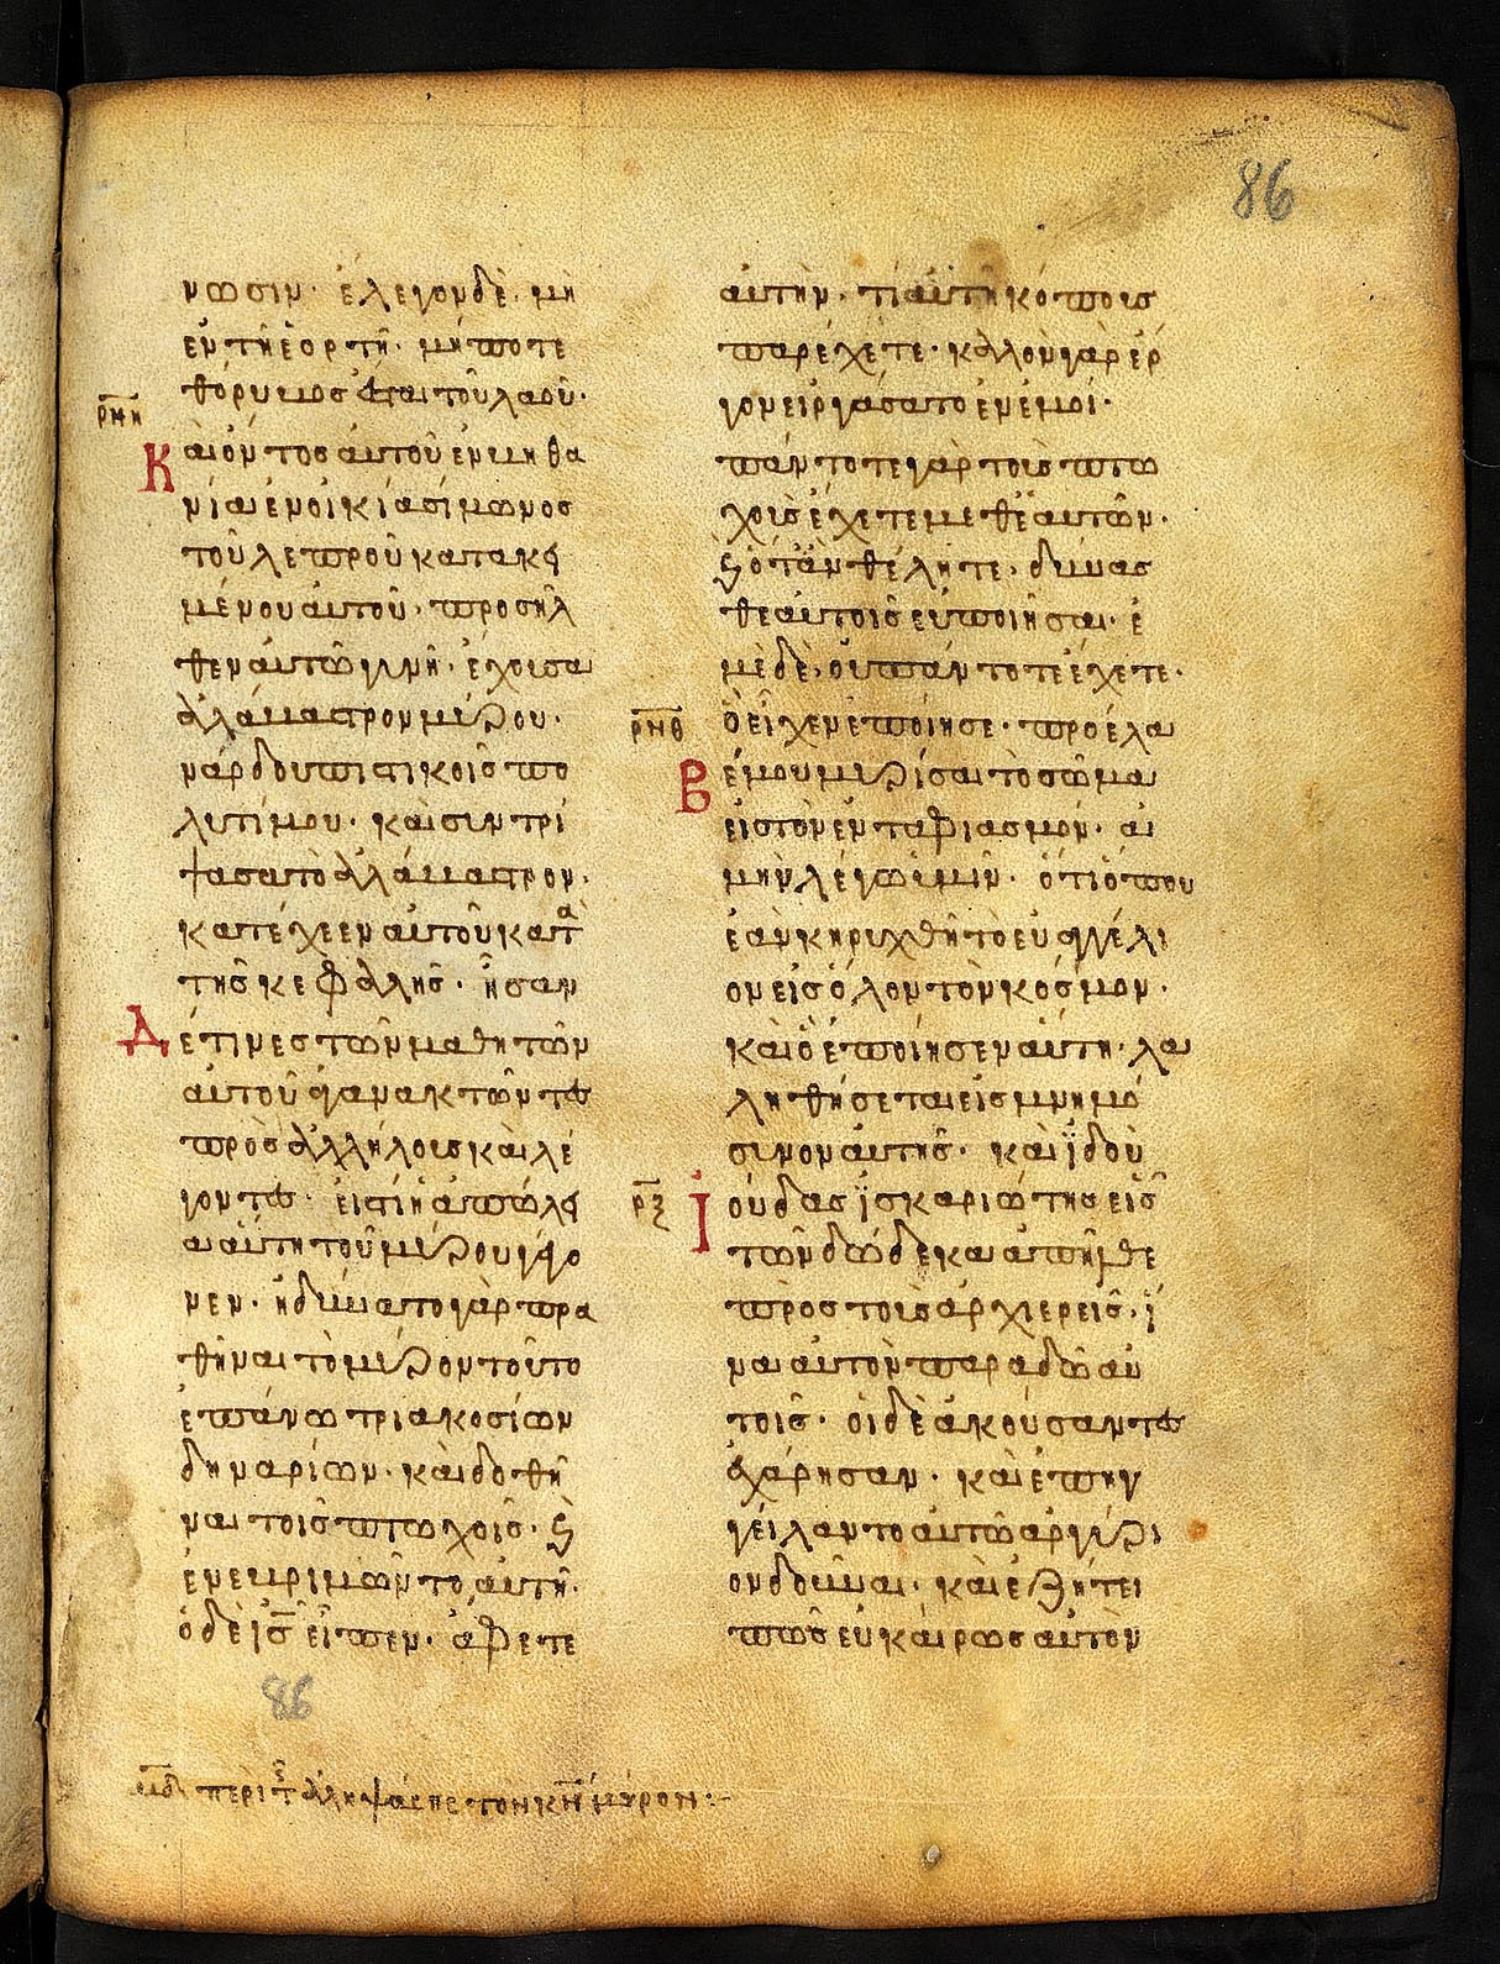 86
νωσιν· ἔλεγον δὲ· μὴ
ἐν τῆ ἑορτῆ· μήποτε
θόρυβος ἔσται τοῦ λαοῦ·
ρνη
Καὶ ὄντος αὐτοῦ ἐν βηθα
νία ἐν οἰκία σίμωνος
τοῦ λεπροῦ κατακει
μένου αὐτοῦ· προσῆλ
θεν αὐτῶ γυνὴ· ἔχουσα
ἀλάβαστρον μύρου·
νάρδου πιστικοῖς πο
λυτίμου· καὶ συντρί
ψασα τὸ ἀλάβαστρον·
κατέχεεν αὐτοῦ κατὰ
τῆς κεφαλλῆς· ἦσαν
Δέ τινες τῶν μαθητῶν
αὐτοῦ ἀγανακτῶντες
πρὸς ἀλλήλους καὶ λέ
γοντες· εἰς τί ἡ ἀπώλει
α αὕτη τοῦ μύρου γέγο
νεν· ἠδύνατο γὰρ πρα
θῆναι τὸ μύρον τοῦτο
ἐπάνω τριακοσίων
δηναρίων· καὶ δοθῆ
ναι τοῖς πτωχοῖς· ϗ
ἐνεβριμῶντο αὐτῆ·
ὁ δὲ ις̅ εἶπεν· ἄφετε
αὐτὴν· τί αὐτῆ κόπους
παρέχετε· καλλὸν γὰρ ἔρ
γον εἰργάσατο ἐν ἐμοί·
πάντοτε γὰρ τοὺς πτω
χοὺς ἔχετε μεθ' ἑαυτῶν·
ϗ ὅταν θέλητε· δύνασ
θε αὐτοῖς εὐποιῆσαι· ἐ
μὲ δὲ· οὐ πάντοτε ἔχετε·
ρνθ
ὃ εἶχεν ἐποίησε· προέλα
Βέ μου μυρίσαι τὸ σῶμα
εἰς τὸν ἐνταφιασμόν· ἀ
μὴν λέγω ὑμῖν· ὅτι ὅπου
ἐὰν κηρυχθῆ τὸ εὐαγγέλι
ον εἰς ὅλον τὸν κόσμον·
καὶ ὃ ἐποίησεν αὕτη· λα
ληθήσεται εἰς μνημό
συνον αὐτῆς· καὶ ϊδοὺ
ρξ
Ἰούδας ϊσκαριώτης εἷς
τῶν δώδεκα ἀπῆλθε
πρὸς τοὺς ἀρχιερεῖς· ἵ
να αὐτὸν παραδῶ αὐ
τοῖς· οἱ δὲ ἀκούσαντες
ἐχάρησαν· καὶ ἐπηγ
γείλαντο αὐτῶ ἀργύρι
ον δοῦναι· καὶ ἐζήτει
πῶς εὐκαίρως αὐτὸν
86
μδ περὶ τ ἀλληψάσης τὸν κν̅ μύρον:–